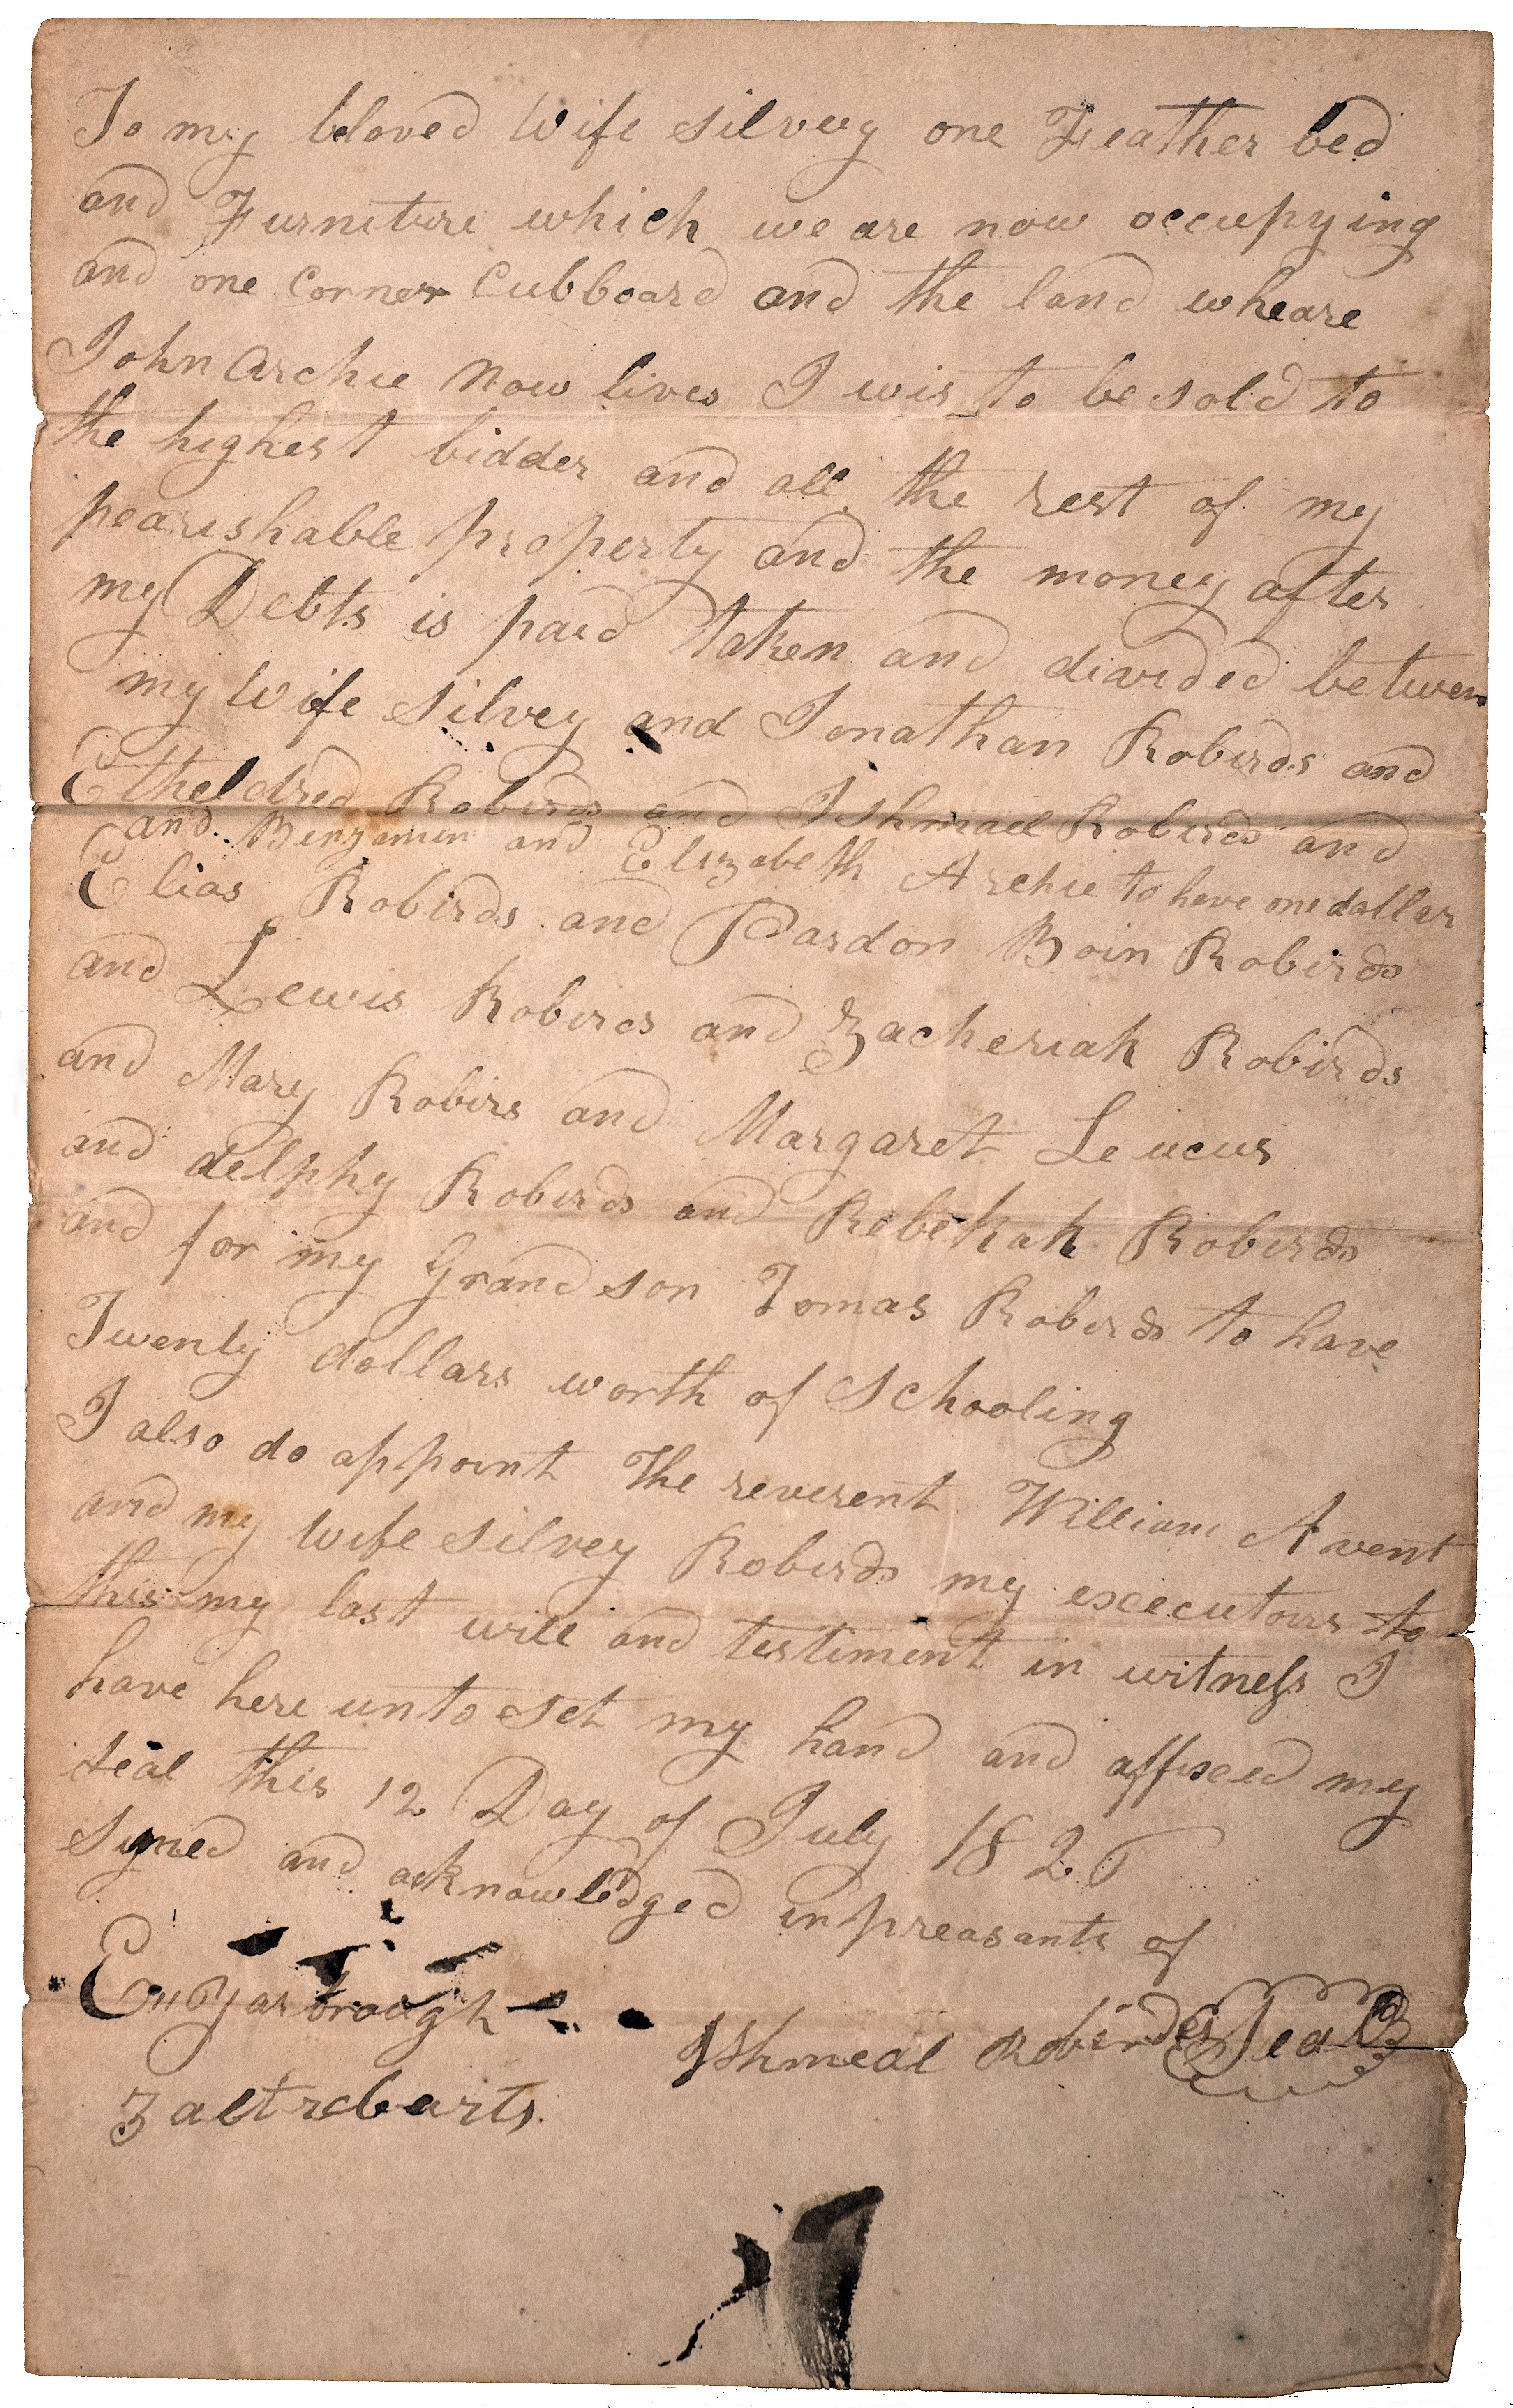 To my beloved wife silvey one Feather bed
and Furniture which we are now occupying
and one Corner Cubboard and the land wheare
John Archie Now lives I wis to be sold to
the highest bidder and all the rest of my
pearishable property and the money after
my Debts is paid taken and diavided betwen
my wife silvey and Jonathan Robirds and
Etheldred Robirds and Ishmael Robirds and
and Benjamin and Elizabeth Archie to have one dollar
Elias Robirds and Pardon Boin Robirds
and Lewis Robirds and Zacheriah Robirds
and Mary Robirs and Margaret Leucus
and delphy Robirds and Rebekah Robirds
and for my Grand son Tomas Robirds to have
Twenty dollars worth of schooling
I also do appoint The reverent William Avent
and my wife silvey Robirds my excecutours to
this my last will and testiment in witness I
have here unto set my hand and affixed my
seal this 12 Day of July 1826
signed and acknowledged in preasants of
Yarbrough
Ishmeal Robirds Seal